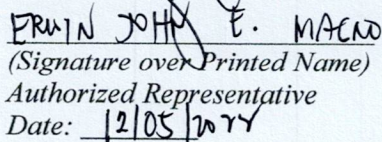 ERWIN JOHN E. MAGNO
(Signature over Printed Name)
Authorized Representative
Date: 12/05/2022